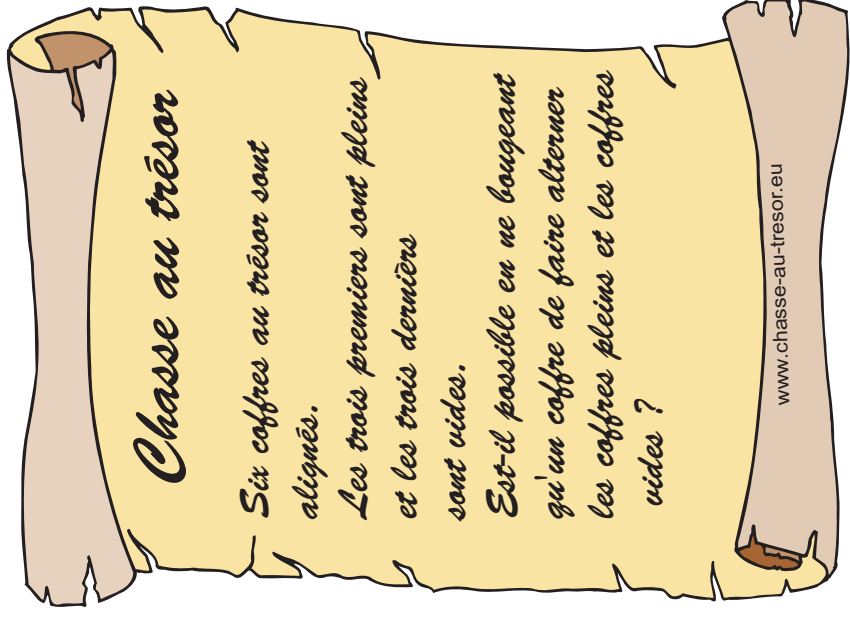 Chasse au trésor
Six coffres au trésor sont
alignés.
Les trois premiers sont pleins
et les trois dernièrs
sont vides.
Est-il possible en ne bougeant
qu'un coffre de faire alterner
les coffres pleins et les coffres
vides ?
www.chasse-au-tresor.eu